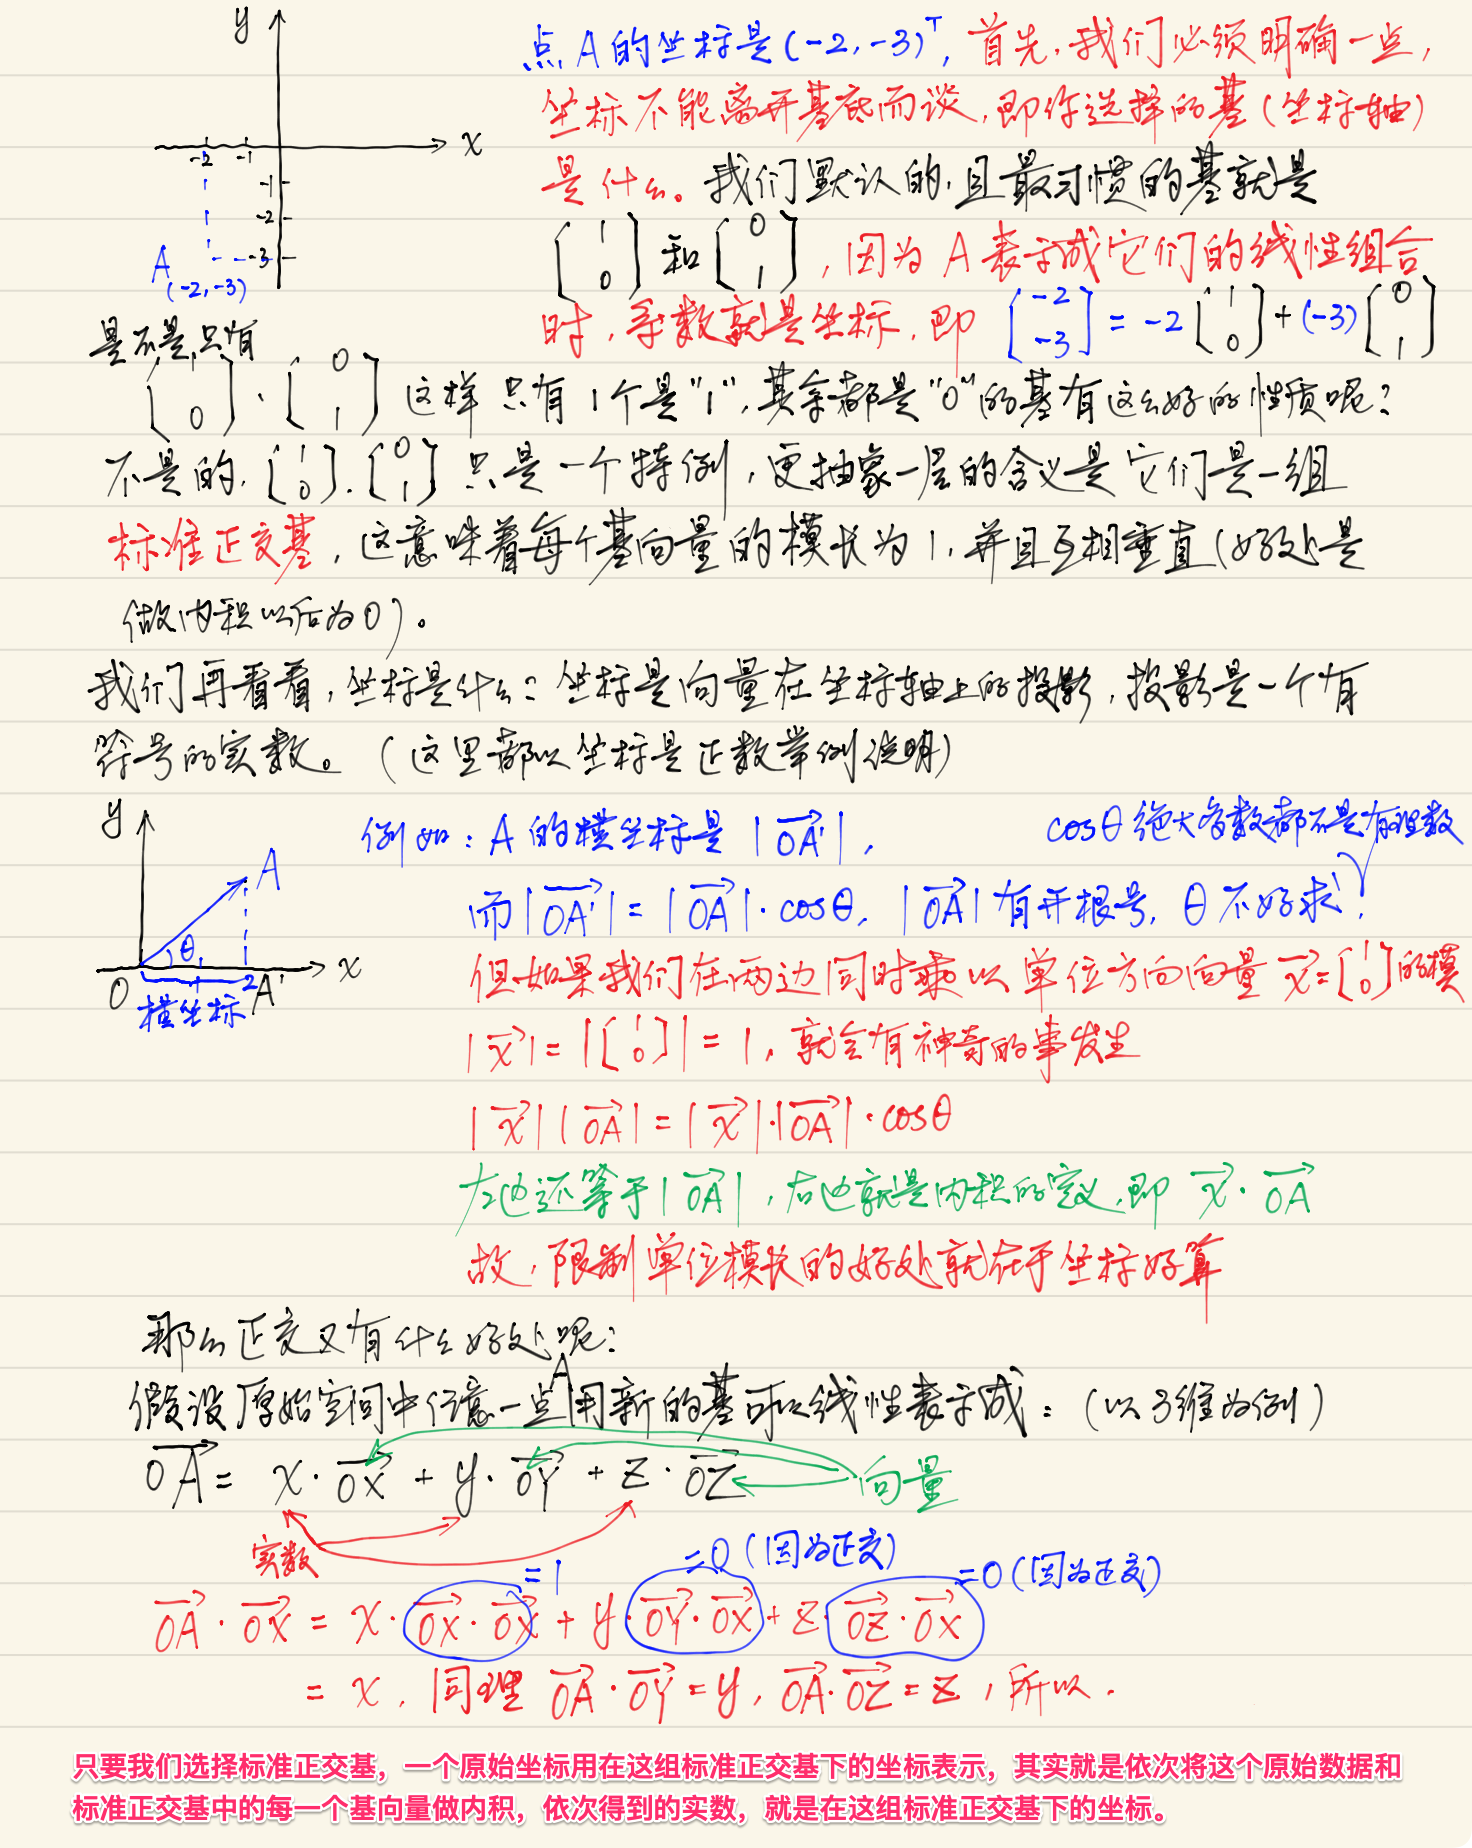 y
x
-2 -1
-1
-2
-3
A
(-2,-3)
点A的坐标是(-2,-3)ᵀ, 首先,我们必须明确一点,
坐标不能离开基底而谈,即你选择的基(坐标轴)
是什么。我们默认的,且最习惯的基就是
[1 0] 和 [0 1], 因为A表示成它们的线性组合
时,系数就是坐标,即 [-2 -3] = -2 [1 0] + (-3) [0 1]
是不是只有
[1 0]、[0 1] 这样只有1个是"1",其余都是"0"的基有这么好的性质呢?
不是的,[1 0]、[0 1] 只是一个特例,更抽象一层的含义是它们是一组
标准正交基,这意味着每个基向量的模长为1,并且互相垂直(好处是
做内积以后为0)。
我们再看看,坐标是什么?坐标是向量在坐标轴上的投影,投影是一个有
符号的实数。(这里都以坐标是正数举例说明)
y
A
θ
O
1
2
A'
x
横坐标
例如:A的横坐标是|OA'|,
cosθ绝大多数都不是有理数
而|OA'| = |OA|·cosθ, |OA|有开根号, θ不好求!
但如果我们在两边同时乘以单位方向向量 x=[1 0]的模
|x| = |[1 0]| = 1, 就会有神奇的事发生
|x||OA| = |x|·|OA|·cosθ
左边还等于|OA|,右边就是内积的定义,即 x·OA
故,限制单位模长的好处就在于坐标好算
那么正交又有什么好处呢?
假设原始空间中任意一点A用新的基可以线性表示成:(以3维为例)
OA = x·OX + y·OY + z·OZ
向量
实数
=1
=0(因为正交)
=0(因为正交)
OA·OX = x·OX·OX + y·OY·OX + z·OZ·OX
= x, 同理 OA·OY = y, OA·OZ = z, 所以.
只要我们选择标准正交基,一个原始坐标用在这组标准正交基下的坐标表示,其实就是依次将这个原始数据和
标准正交基中的每一个基向量做内积,依次得到的实数,就是在这组标准正交基下的坐标。